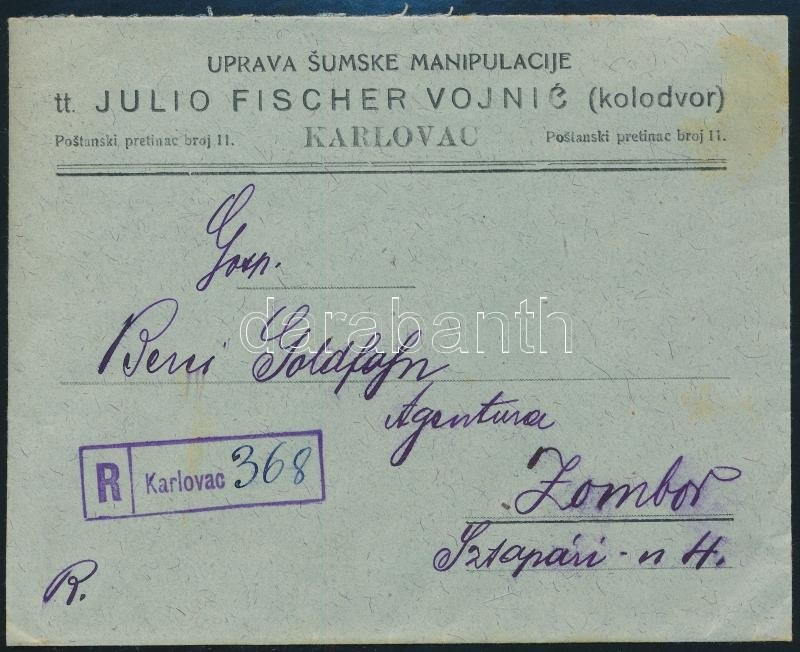 UPRAVA ŠUMSKE MANIPULACIJE
tt. JULIO FISCHER VOJNIĆ (kolodvor)
Poštanski pretinac broj 11. KARLOVAC Poštanski pretinac broj 11.
Gosp.
darabanth
Berci Goldfahn
Agentura
R Karlovac 368
Zombor
Sztapári - u 4.
R.